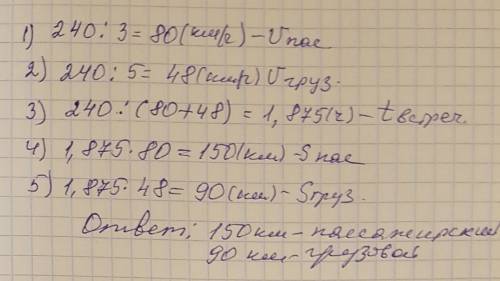 1) 240 : 3 = 80 (км/ч) – Vпас
2) 240 : 5 = 48 (км/ч) Vгруз.
3) 240 : (80+48) = 1,875 (ч) – tвстреч.
4) 1,875 · 80 = 150 (км) – Sпас
5) 1,875 · 48 = 90 (км) – Sгруз.
Ответ: 150 км – пассажирский
90 км – грузовой